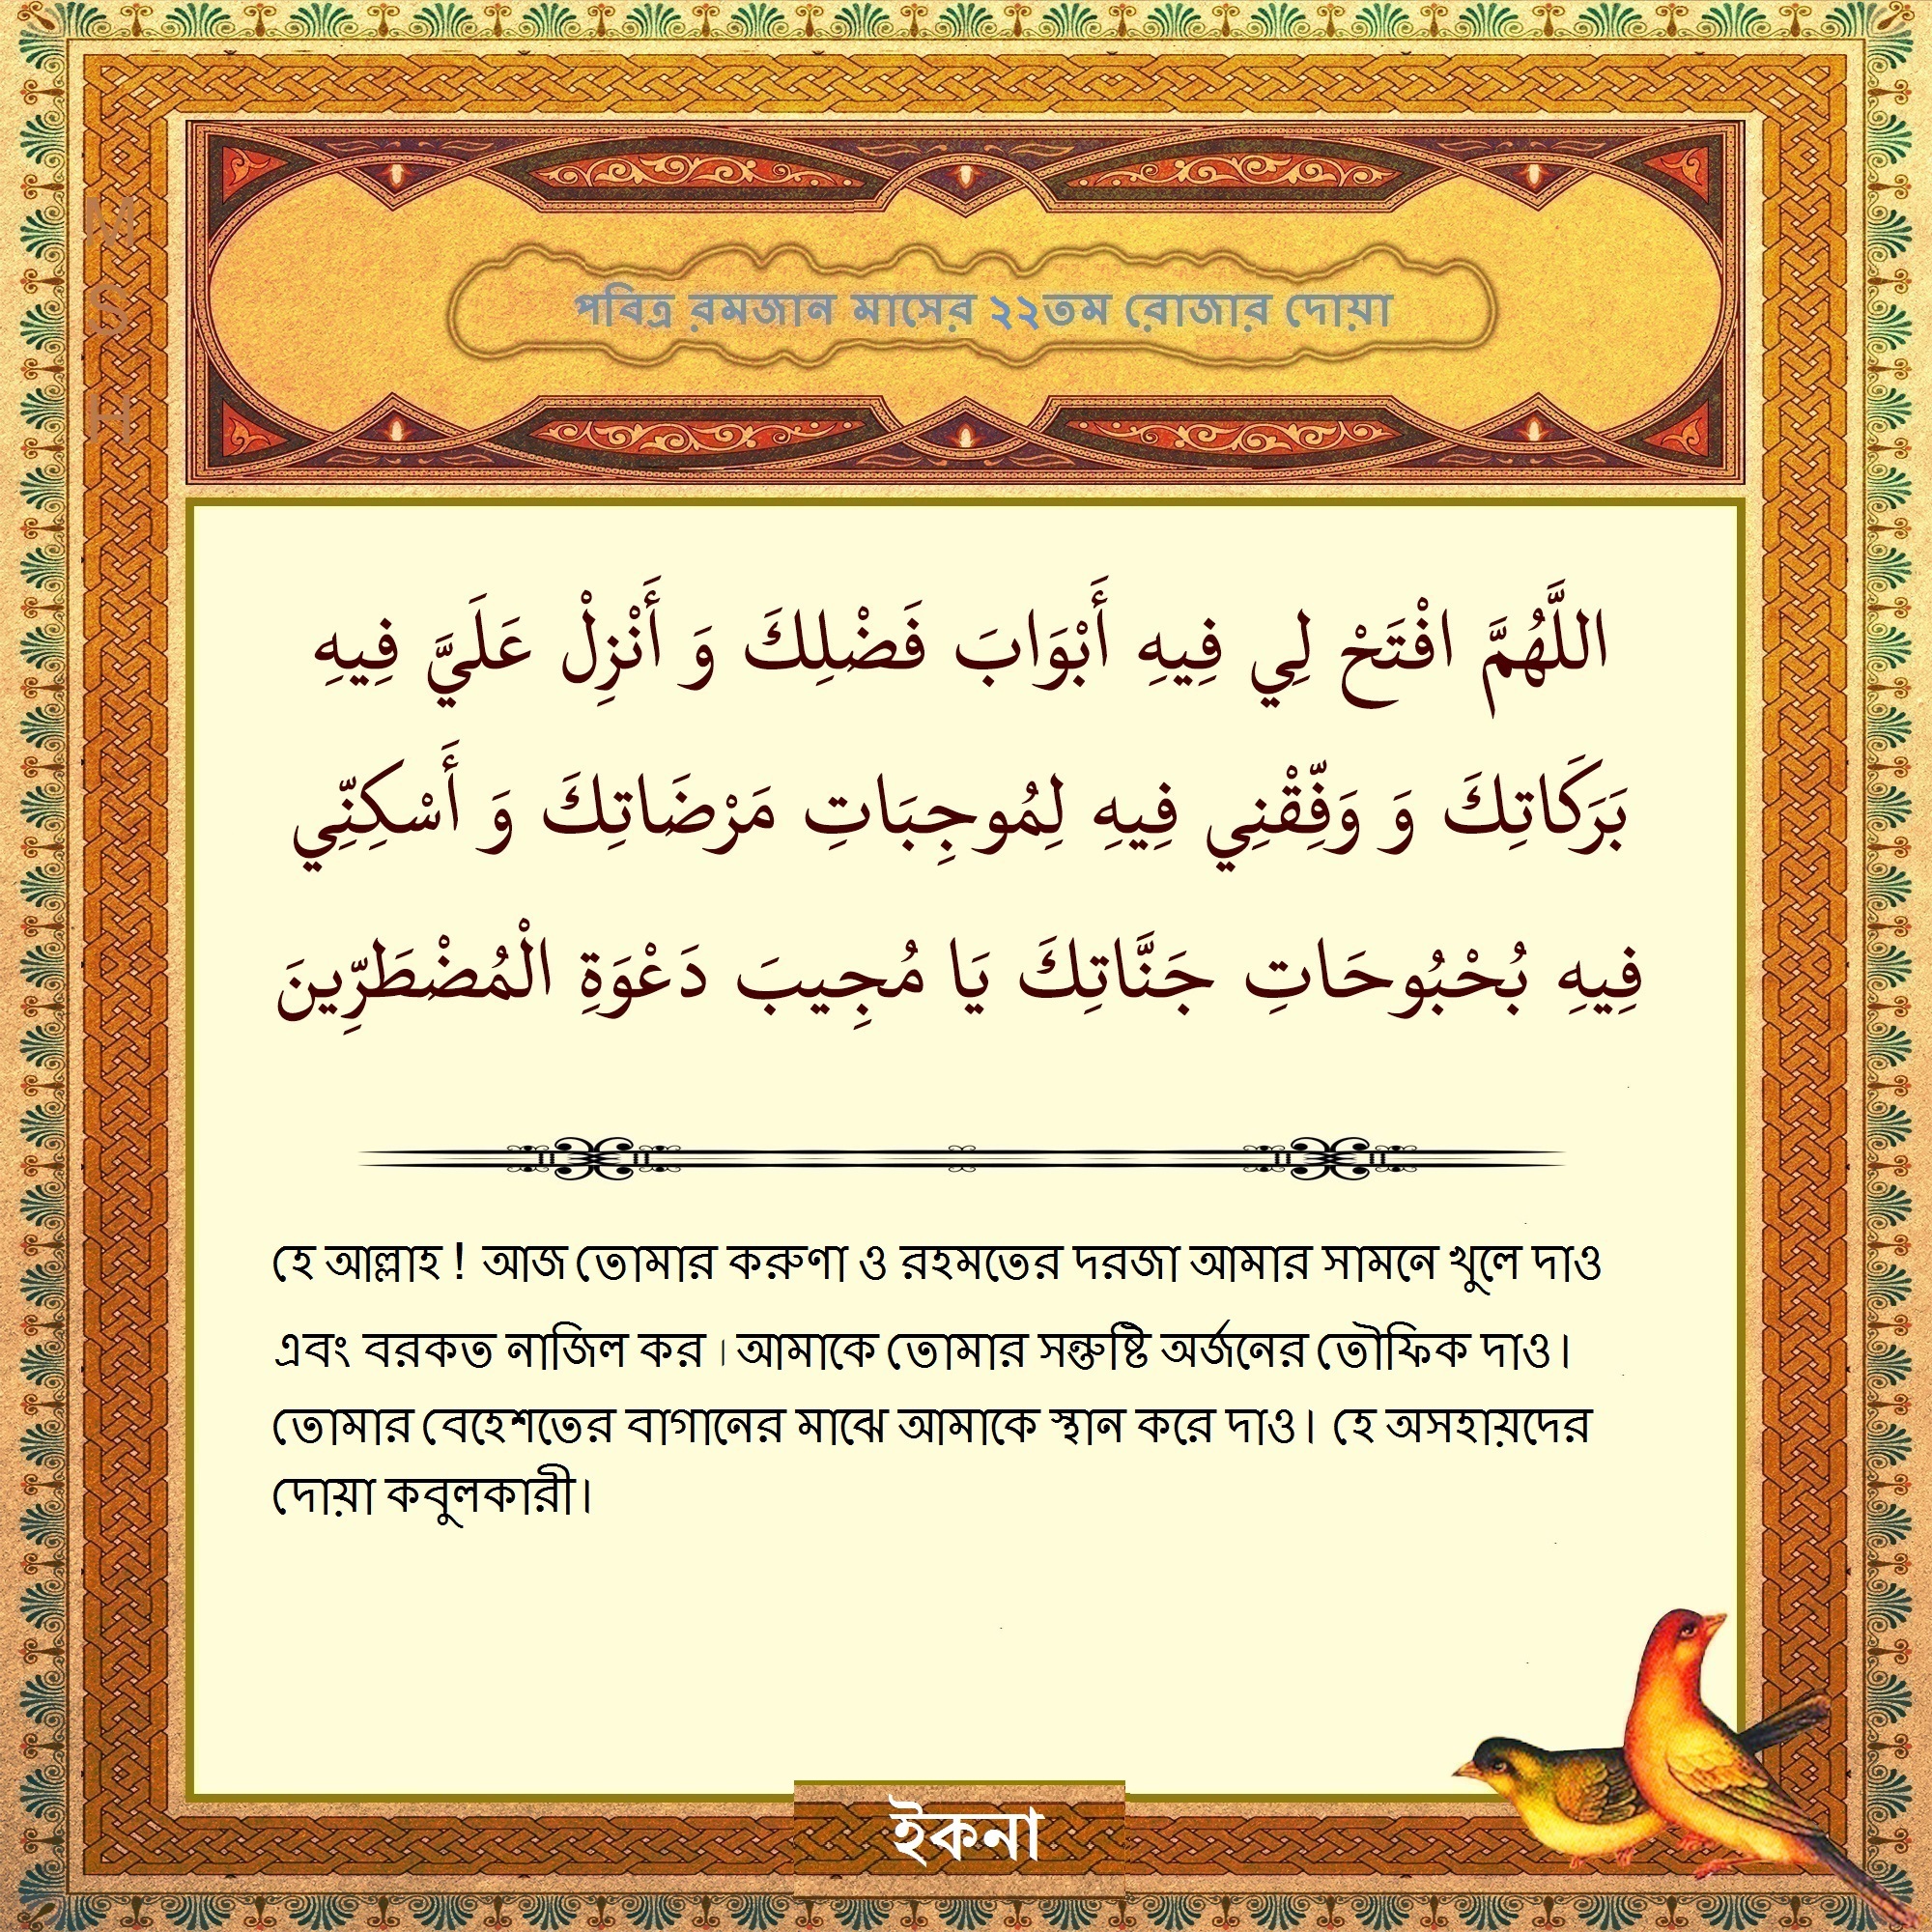 পবিত্র রমজান মাসের ২২তম রোজার দোয়া
M
S
H
اللَّهُمَّ افْتَحْ لِي فِيهِ أَبْوَابَ فَضْلِكَ وَ أَنْزِلْ عَلَيَّ فِيهِ
بَرَكَاتِكَ وَ وَفِّقْنِي فِيهِ لِمُوجِبَاتِ مَرْضَاتِكَ وَ أَسْكِنِّي
فِيهِ بُحْبُوحَاتِ جَنَّاتِكَ يَا مُجِيبَ دَعْوَةِ الْمُضْطَرِّينَ
হে আল্লাহ ! আজ তোমার করুণা ও রহমতের দরজা আমার সামনে খুলে দাও
এবং বরকত নাজিল কর । আমাকে তোমার সন্তুষ্টি অর্জনের তৌফিক দাও।
তোমার বেহেশতের বাগানের মাঝে আমাকে স্থান করে দাও। হে অসহায়দের
দোয়া কবুলকারী।
ইকনা